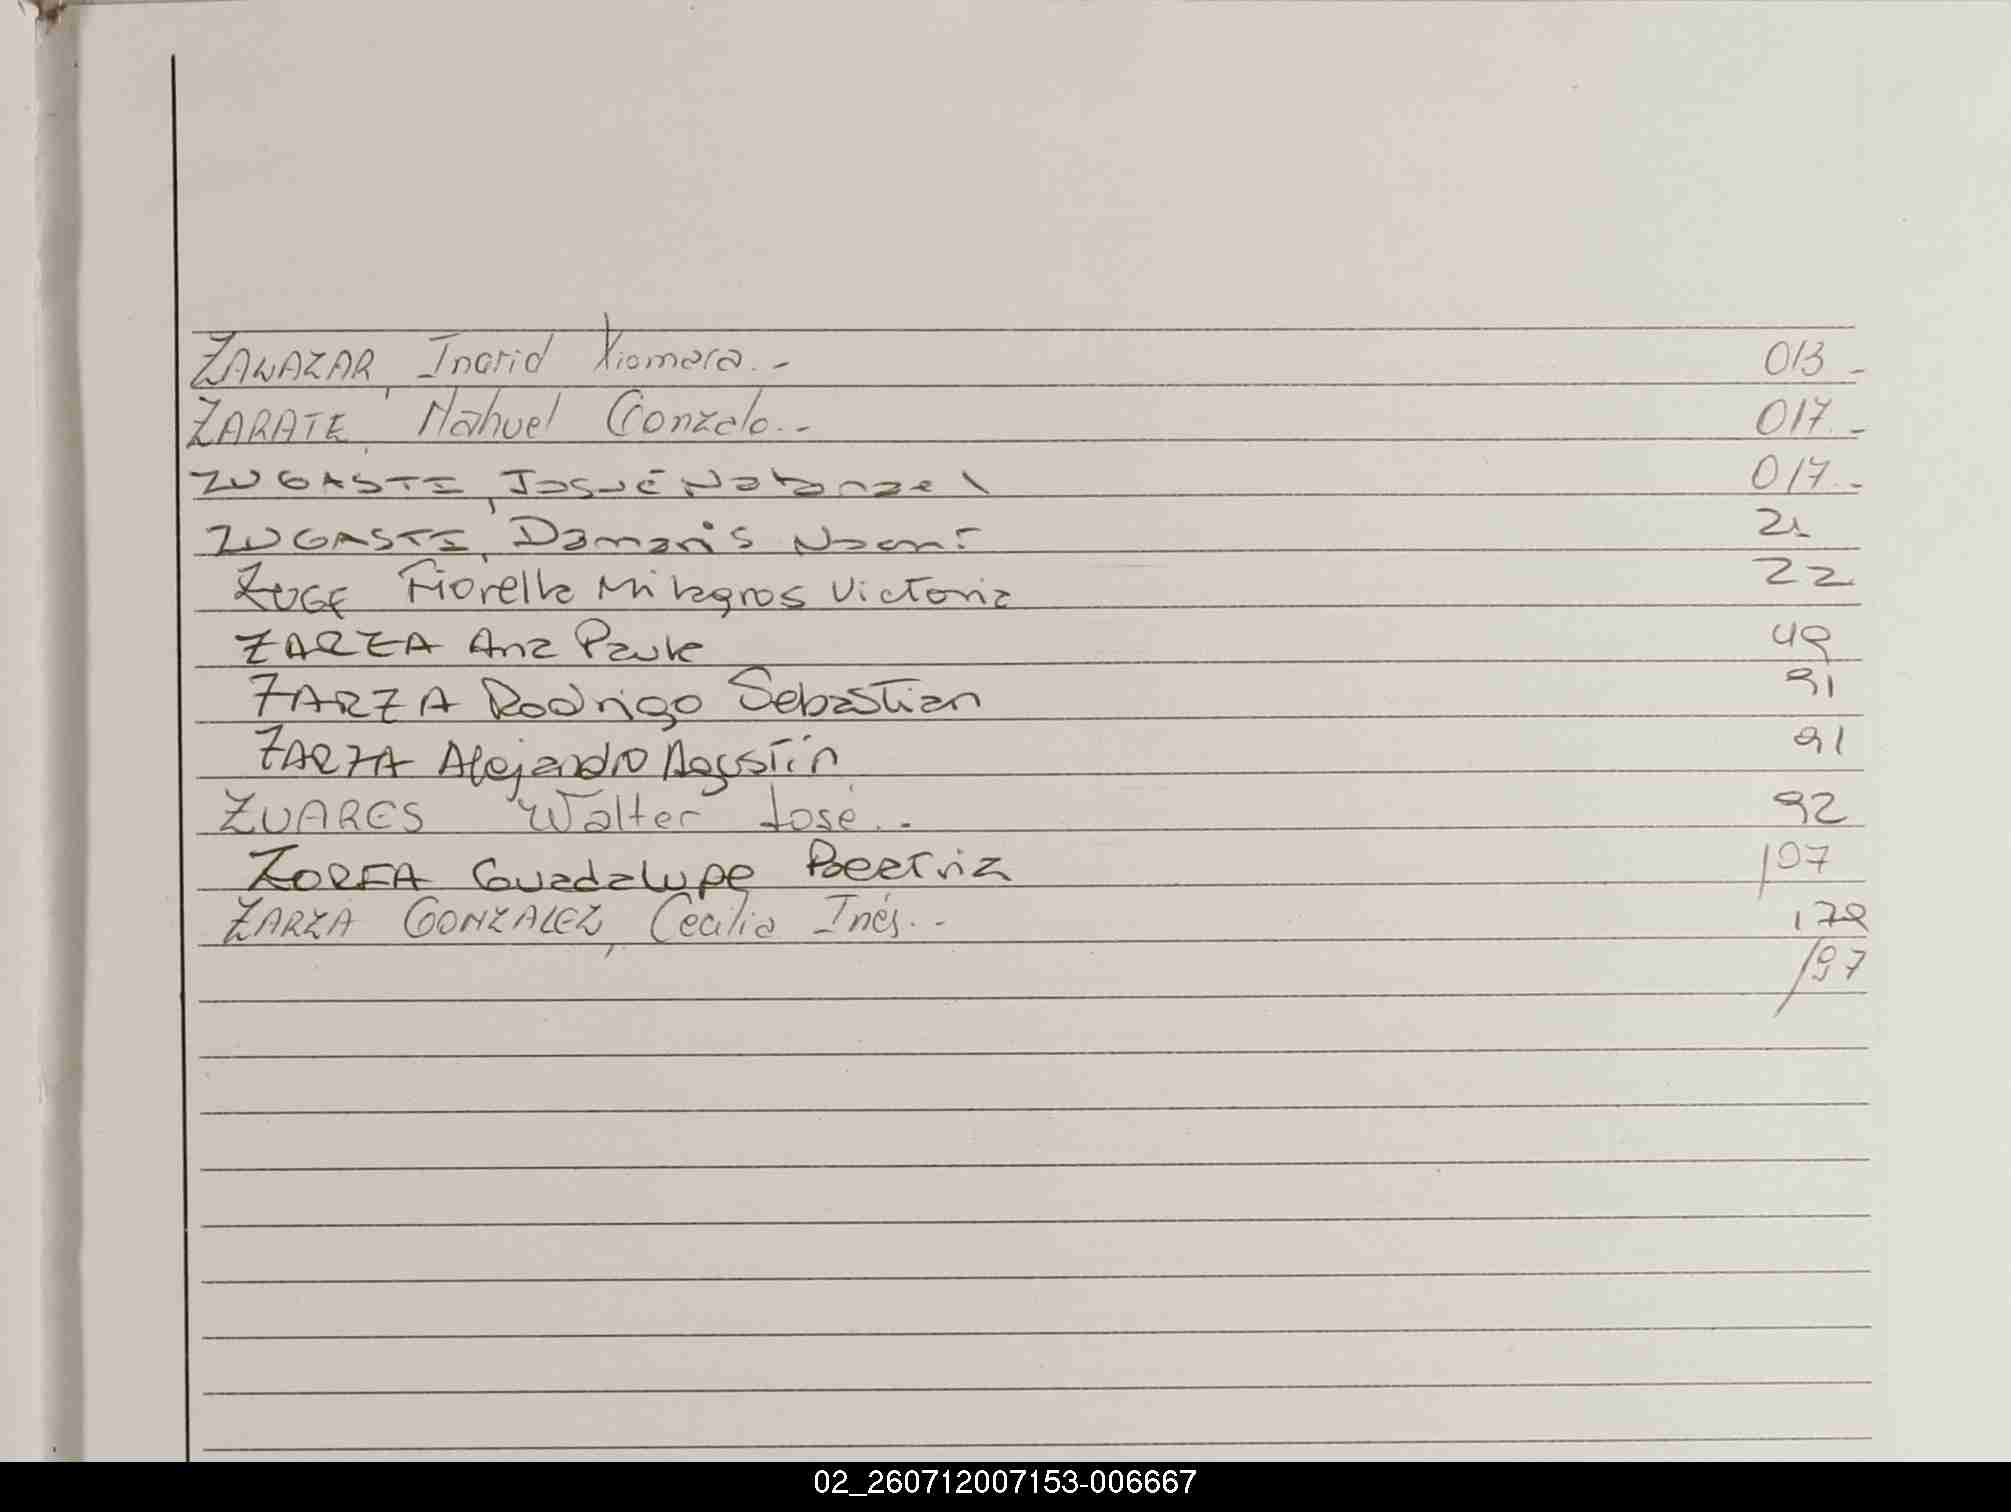 ZALAZAR, Ingrid Xiomara.- 013.-
ZARATE, Nahuel Gonzalo.- 017.-
ZUGASTI, Josué Natanael 017.-
ZUGASTI, Damaris Noemí 21
ZUGE Fiorella Milagros Victoria 22
ZARZA Ana Paula 49
ZARZA Rodrigo Sebastian 91
ZARZA Alejandro Agustín 91
ZUARES Walter José.- 92
ZOREA Guadalupe Beatriz 107
ZARZA GONZALEZ, Cecilia Inés.- 178
197
02_260712007153-006667